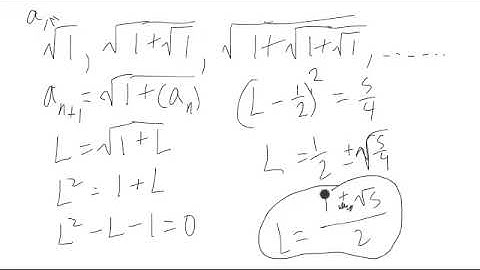 a₁=
√1, √(1+√1), √(1+√(1+√1)), ......
aₙ₊₁=√(1+(aₙ))
L=√(1+L)
L²=1+L
L²-L-1=0
(L-1/2)²=5/4
L=1/2±√(5/4)
L=(1±√5)/2